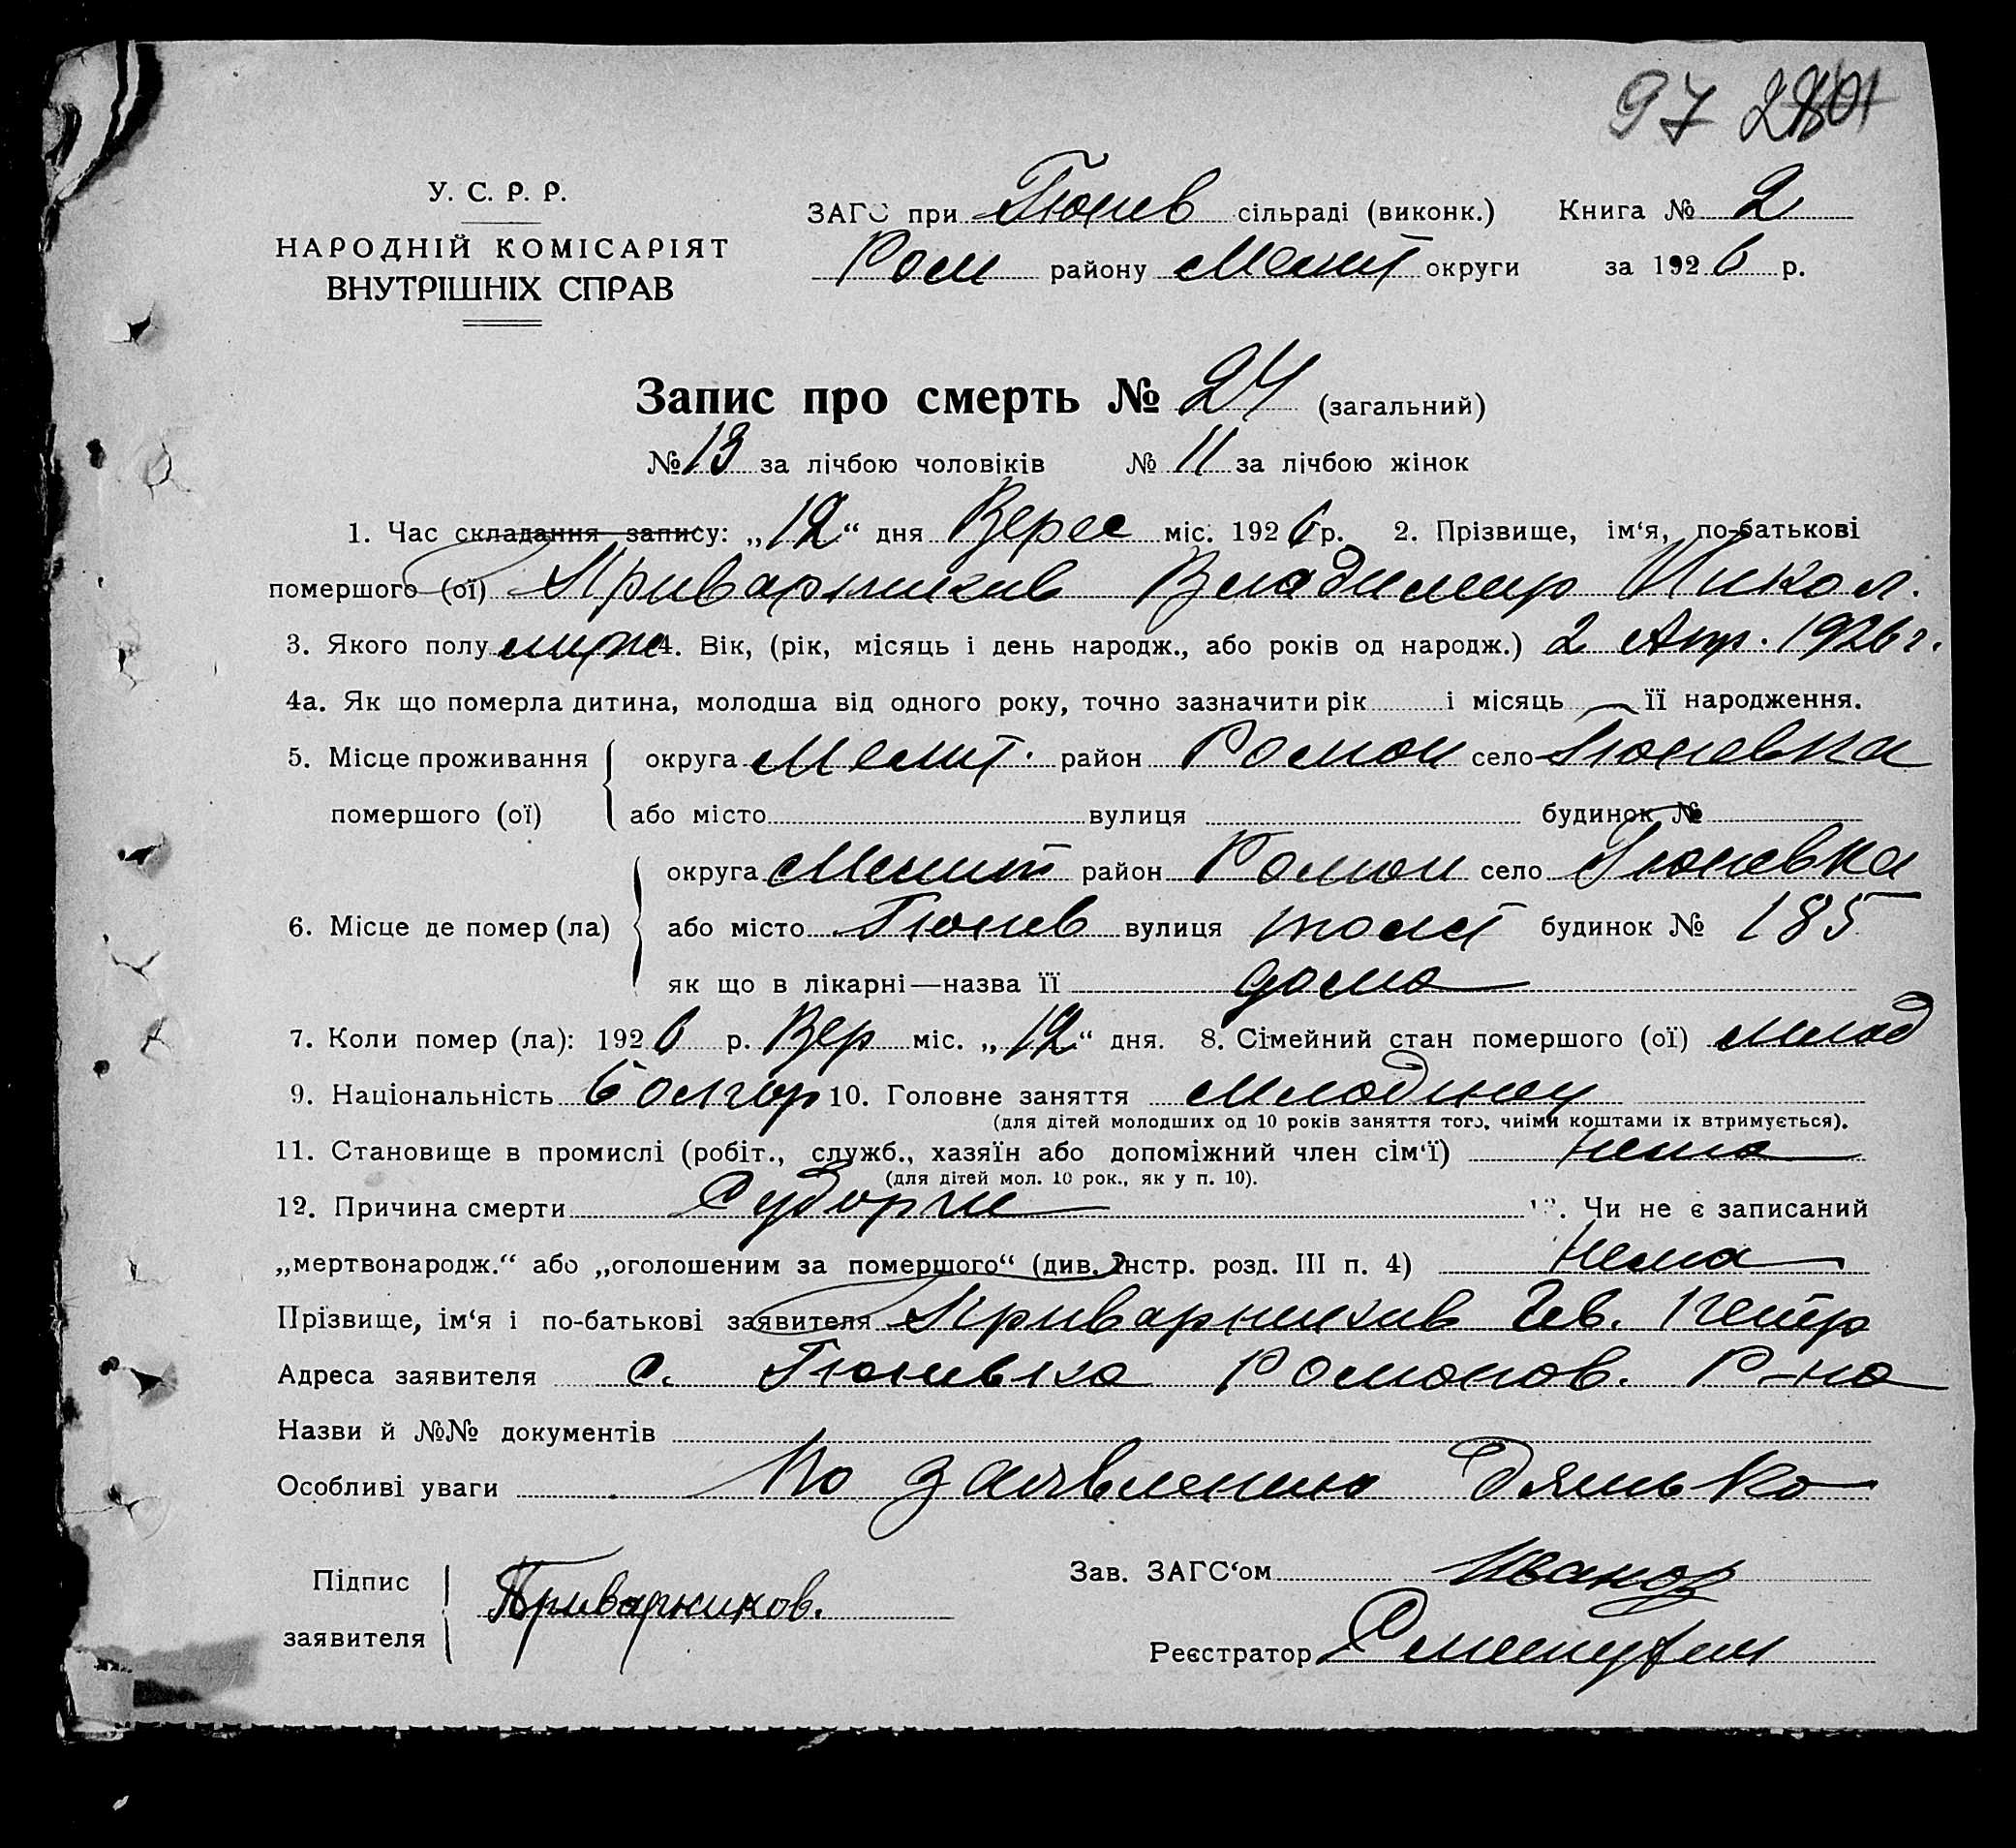 97 2801
У. С. Р. Р.
НАРОДНІЙ КОМІСАРІЯТ
ВНУТРІШНІХ СПРАВ
ЗАГС при Гюнев сільраді (виконк.) Книга № 2
Ром району Мелит округи за 1926 р.
Запис про смерть № 24 (загальний)
№ 13 за лічбою чоловіків № 11 за лічбою жінок
1. Час складання запису: „12“ дня Верес міс. 1926 р. 2. Прізвище, ім‘я, по-батькові
помершого (ої) Приварников Владимир Никол.
3. Якого полу муж 4. Вік, (рік, місяць і день народж., або років од народж.) 2 Апр. 1926 г.
4а. Як що померла дитина, молодша від одного року, точно зазначити рік і місяць її народження.
5. Місце проживання округа Мелит. район Роман село Гюневка
помершого (ої) або місто вулиця будинок №
округа Мелит район Роман село Гюневка
6. Місце де помер (ла) або місто Гюнев вулиця будинок № 185
як що в лікарні—назва її дома
7. Коли помер (ла): 1926 р. Вер міс. „12“ дня. 8. Сімейний стан помершого (ої) млад
9. Національність болгар 10. Головне заняття
(для дітей молодших од 10 років заняття того, чиїми коштами їх втримується).
11. Становище в промислі (робіт., служб., хазяїн або допоміжний член сім‘ї) нема
(для дітей мол. 10 рок., як у п. 10).
12. Причина смерти Судорги 13. Чи не є записаний
„мертвонародж.“ або „оголошеним за помершого“ (див. Інстр. розд. III п. 4) нема
Прізвище, ім‘я і по-батькові заявителя Приварников Петр
Адреса заявителя с. Гюневка Романов. Р-на
Назви й №№ документів
Особливі уваги По заявлению Дядько
Підпис
заявителя
Приварников.
Зав. ЗАГС‘ом Иванов
Реєстратор